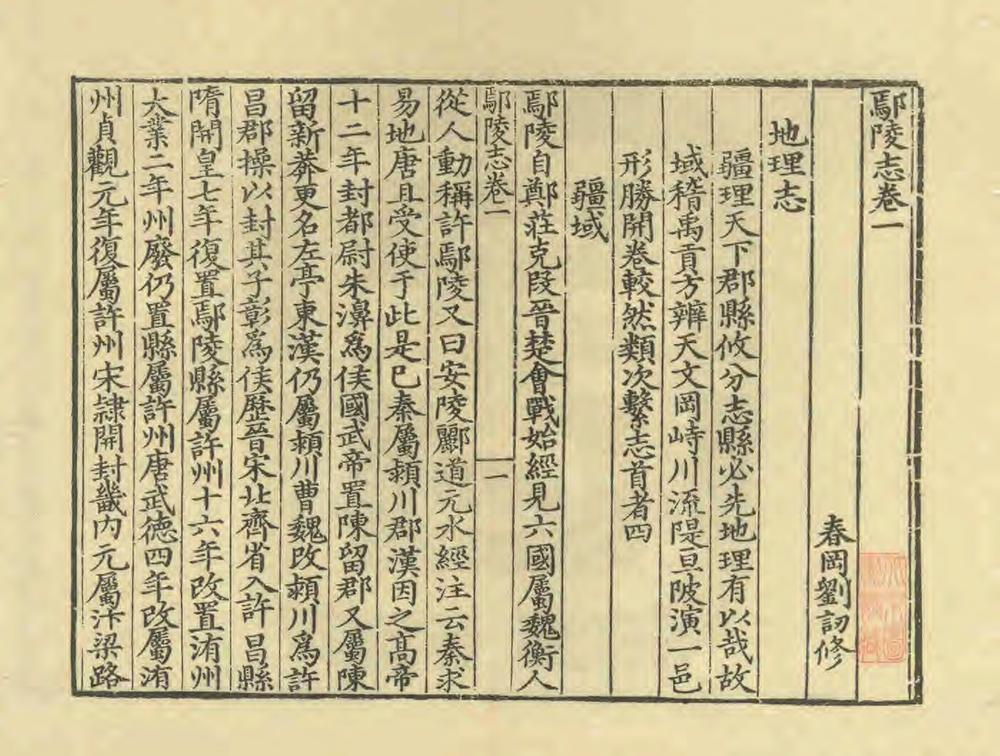 鄢陵志卷一
春岡劉訒修
地理志
疆理天下郡縣攸分志縣必先地理有以哉故
域稽禹貢方辨天文岡峙川流隄亘陂演一邑
形勝開卷較然類次繫志首者四
疆域
鄢陵自鄭莊克段晉楚會戰始經見六國屬魏衡人
鄢陵志卷一
一
從人動稱許鄢陵又曰安陵酈道元水經注云秦求
易地唐且受使于此是巳秦屬潁川郡漢因之髙帝
十二年封都尉朱濞爲侯國武帝置陳留郡又屬陳
留新莽更名左亭東漢仍屬潁川曹魏改潁川爲許
昌郡操以封其子彰爲侯歷晉宋北齊省入許昌縣
隋開皇七年復置鄢陵縣屬許州十六年改置洧州
大業二年州廢仍置縣屬許州唐武德四年改屬洧
州貞觀元年復屬許州宋隷開封畿内元屬汴梁路